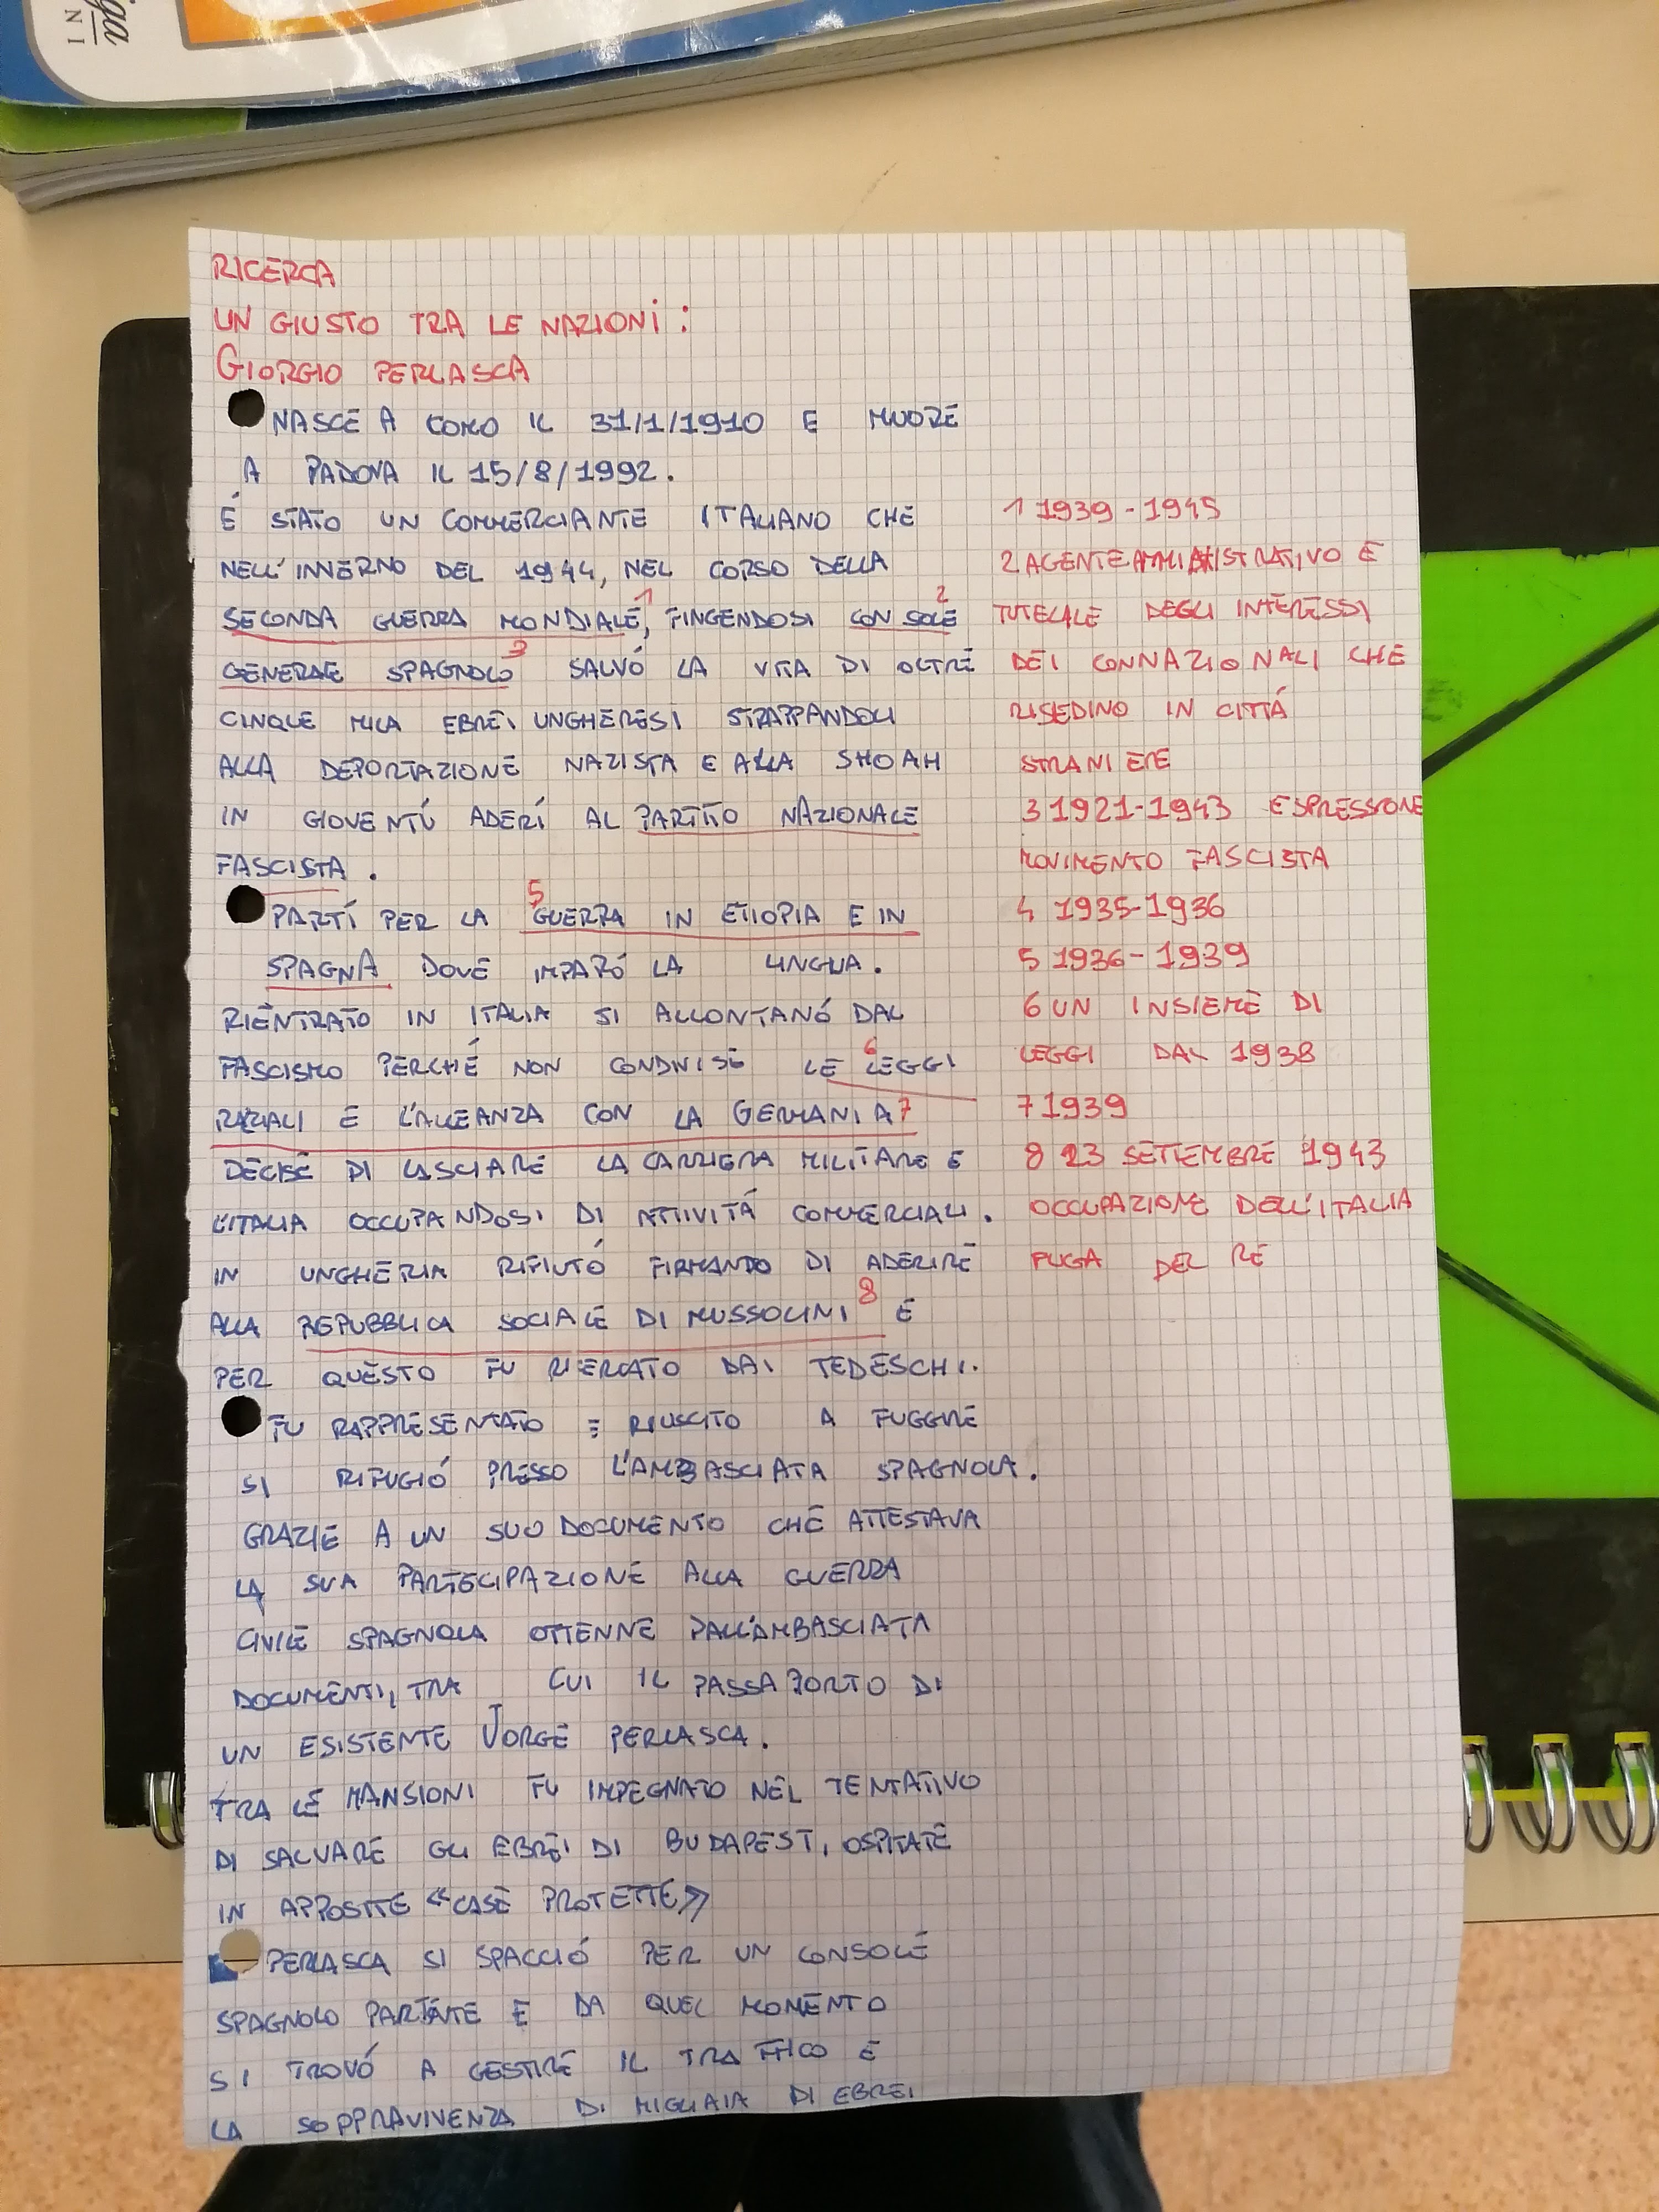 iga
IN
RICERCA
UN GIUSTO TRA LE NAZIONI:
GIORGIO PERLASCA
NASCE A COMO IL 31/1/1910 E MUORE
A PADOVA IL 15/8/1992.
É STATO UN COMMERCIANTE ITALIANO CHE
NELL'INVERNO DEL 1944, NEL CORSO DELLA
SECONDA GUERRA MONDIALE,1 FINGENDOSI CONSOLE2
GENERALE SPAGNOLO3 SALVÓ LA VITA DI OLTRE
CINQUE MILA EBREI UNGHERESI STRAPPANDOLI
ALLA DEPORTAZIONE NAZISTA E ALLA SHOAH
IN GIOVENTÚ ADERÍ AL PARTITO NAZIONALE
FASCISTA.
PARTÍ PER LA 5GUERRA IN ETIOPIA E IN
SPAGNA DOVE IMPARÓ LA LINGUA.
RIENTRATO IN ITALIA SI ALLONTANÓ DAL
FASCISMO PERCHÉ NON CONDIVISE LE 6LEGGI
RAZIALI E L'ALLEANZA CON LA GERMANIA7
DECISE DI LASCIARE LA CARRIERA MILITARE E
L'ITALIA OCCUPANDOSI DI ATTIVITÁ COMMERCIALI.
IN UNGHERIA RIFIUTÓ FIRMANDO DI ADERIRE
ALLA REPUBBLICA SOCIALE DI MUSSOLINI8 E
PER QUESTO FU RIERCATO DAI TEDESCHI.
FU RAPPRESENTATO E RIUSCITO A FUGGIRE
SI RIFUGIÓ PRESSO L'AMBASCIATA SPAGNOLA.
GRAZIE A UN SUO DOCUMENTO CHE ATTESTAVA
LA SUA PARTECIPAZIONE ALLA GUERRA
CIVILE SPAGNOLA OTTENNE DALL'AMBASCIATA
DOCUMENTI, TRA CUI IL PASSAPORTO DI
UN ESISTENTE JORGE PERLASCA.
TRA LE MANSIONI FU IMPEGNATO NEL TENTATIVO
DI SALVARE GLI EBREI DI BUDAPEST, OSPITATE
IN APPOSITE «CASE PROTETTE»
PERLASCA SI SPACCIÓ PER UN CONSOLE
SPAGNOLO E DA QUEL MOMENTO
SI TROVÓ A GESTIRE IL TRAFFICO E
LA SOPPRAVIVENZA DI MIGLIAIA DI EBREI
1 1939-1945
2 AGENTE AMMINISTRATIVO E
TUTELALE DEGLI INTERESSI
DEI CONNAZIONALI CHE
RISIEDINO IN CITTÁ
STRANIERE
3 1921-1943 ESPRESSIONE
MOVIMENTO FASCISTA
4 1935-1936
5 1936-1939
6 UN INSIEME DI
LEGGI DAL 1938
7 1939
8 23 SETTEMBRE 1943
OCCUPAZIONE DELL'ITALIA
FUGA DEL RE